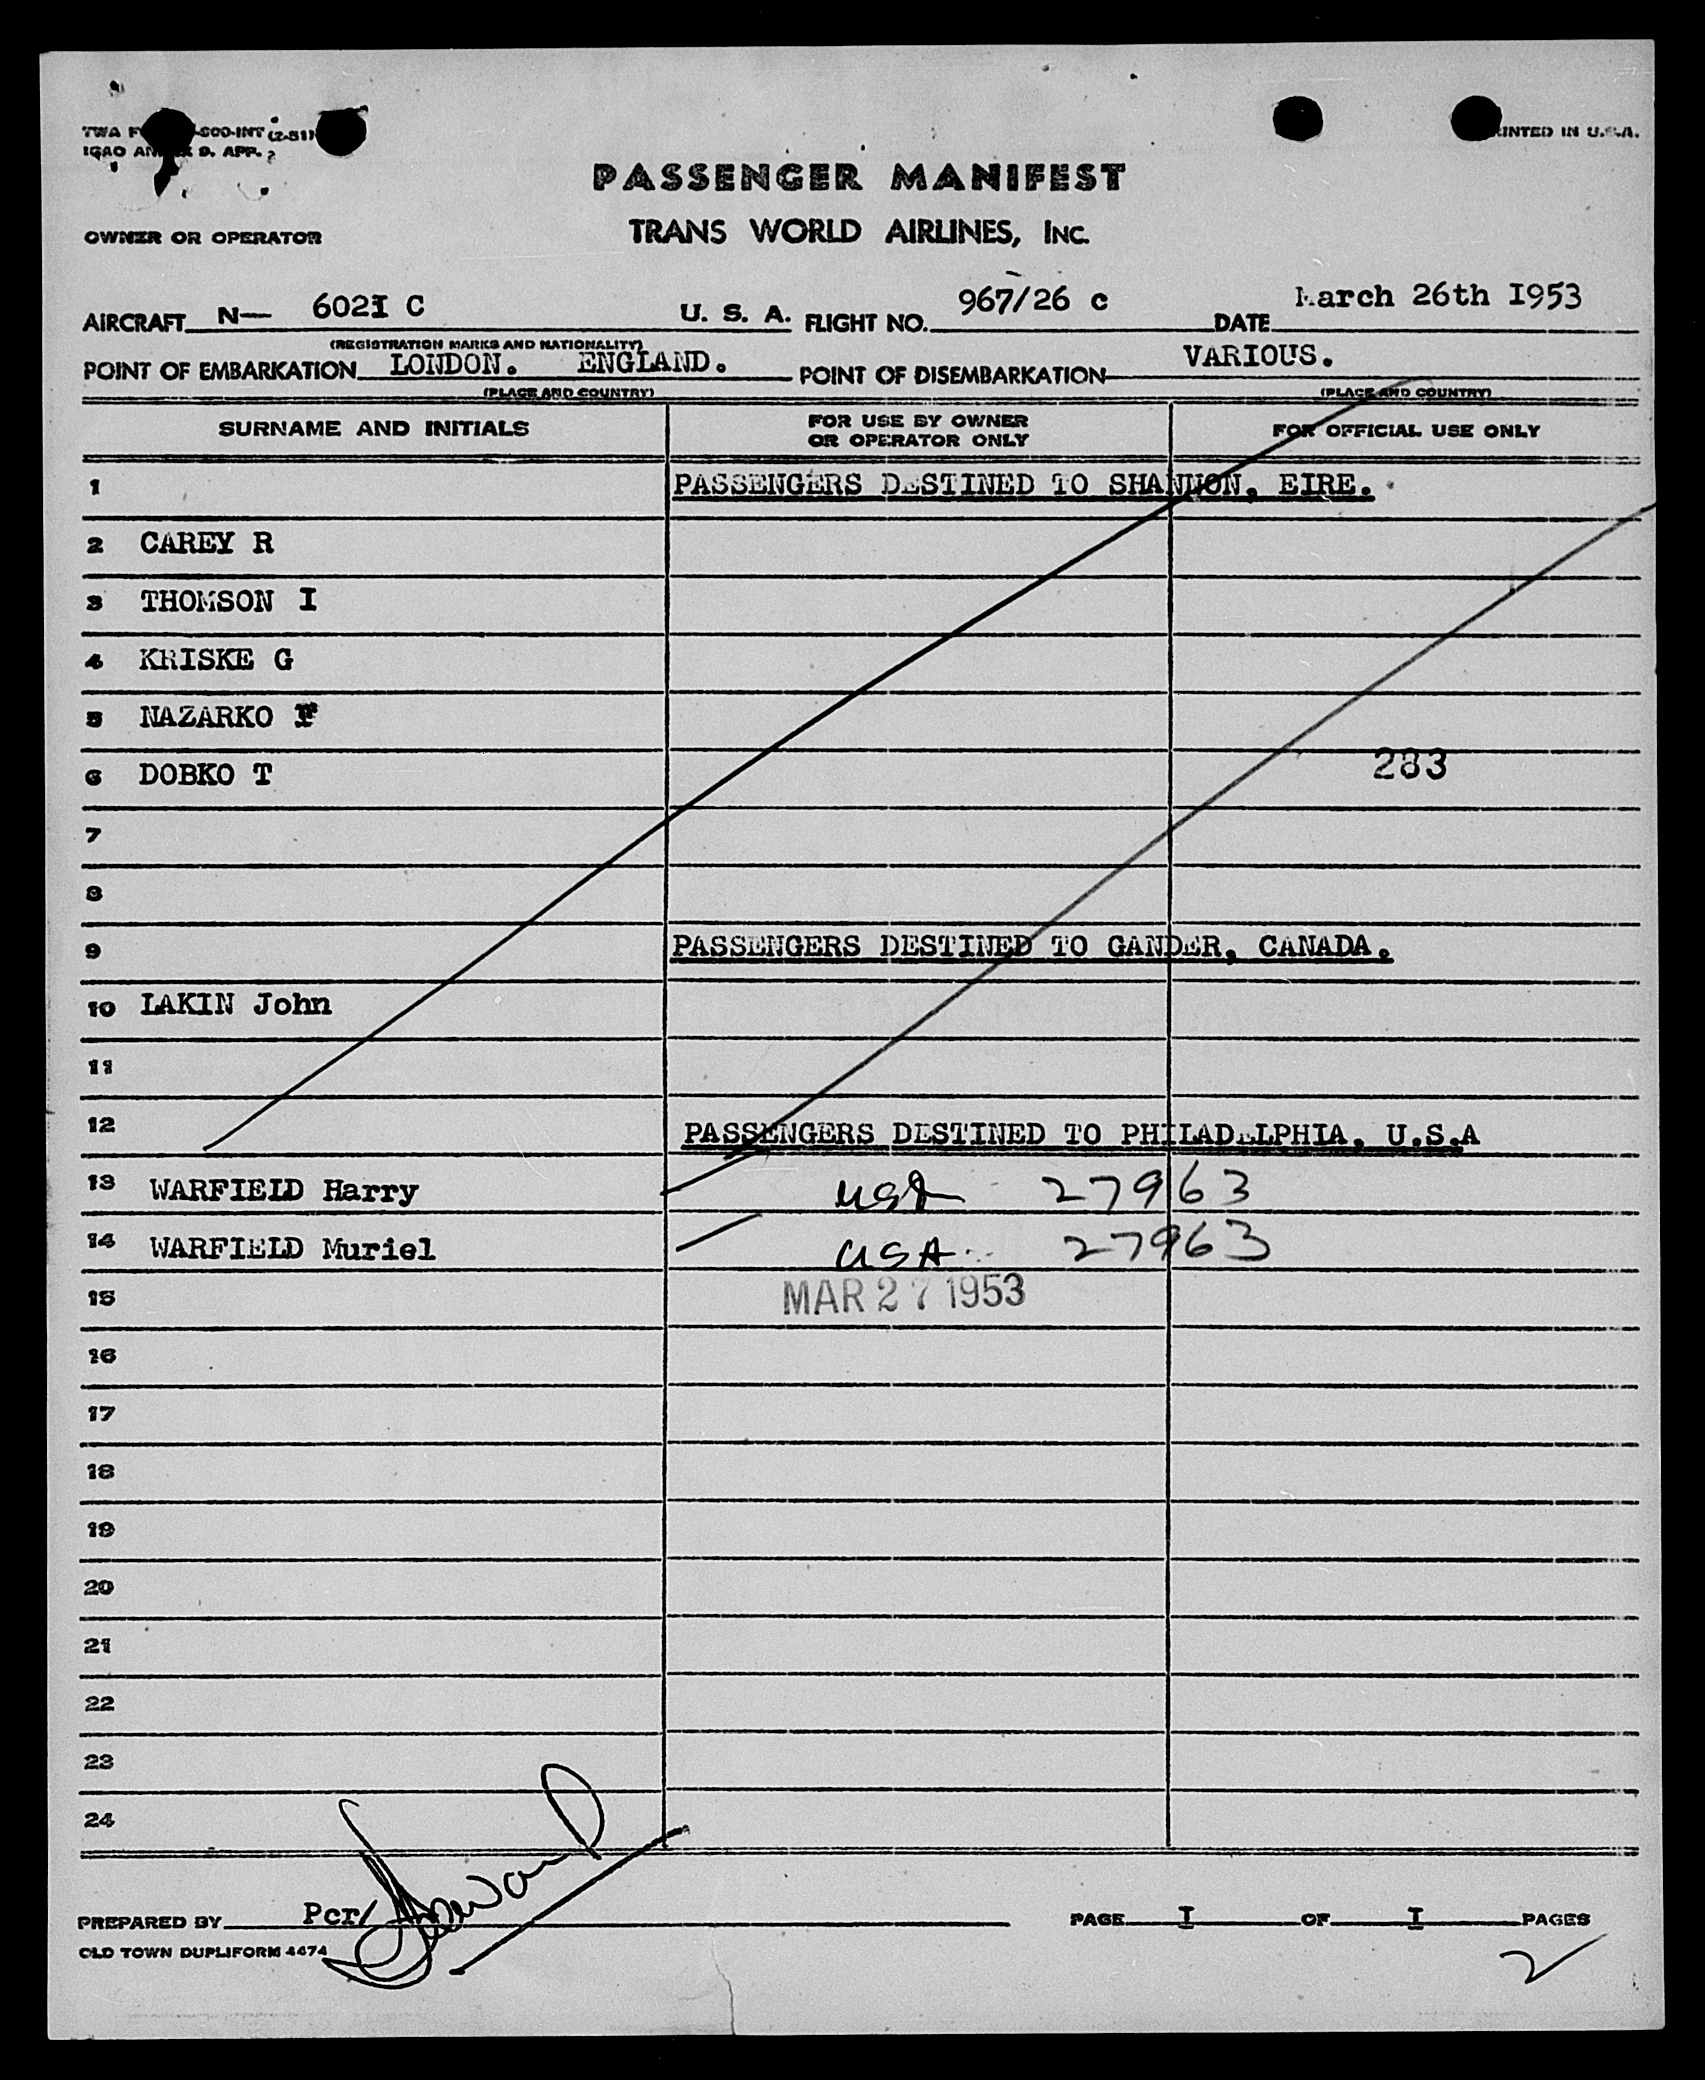 TWA F -800-INT (2-51) PRINTED IN U.S.A.
ICAO ANNEX 9. APP. 2
PASSENGER MANIFEST
OWNER OR OPERATOR TRANS WORLD AIRLINES, INC.
AIRCRAFT N— 602I C U. S. A. FLIGHT NO. 967/26 c DATE March 26th I953
(REGISTRATION MARKS AND NATIONALITY)
POINT OF EMBARKATION LONDON. ENGLAND. POINT OF DISEMBARKATION VARIOUS.
(PLACE AND COUNTRY) (PLACE AND COUNTRY)
SURNAME AND INITIALS FOR USE BY OWNER OR OPERATOR ONLY FOR OFFICIAL USE ONLY
1 PASSENGERS DESTINED TO SHANNON, EIRE.
2 CAREY R
3 THOMSON I
4 KRISKE G
5 NAZARKO F
6 DOBKO T 283
7
8
9 PASSENGERS DESTINED TO GANDER, CANADA.
10 LAKIN John
11
12 PASSENGERS DESTINED TO PHILADELPHIA, U.S.A
13 WARFIELD Harry USA 27963
14 WARFIELD Muriel USA 27963
15 MAR 27 1953
16
17
18
19
20
21
22
23
24
PREPARED BY Per/ PAGE I OF I PAGES
OLD TOWN DUPLIFORM 4474 2